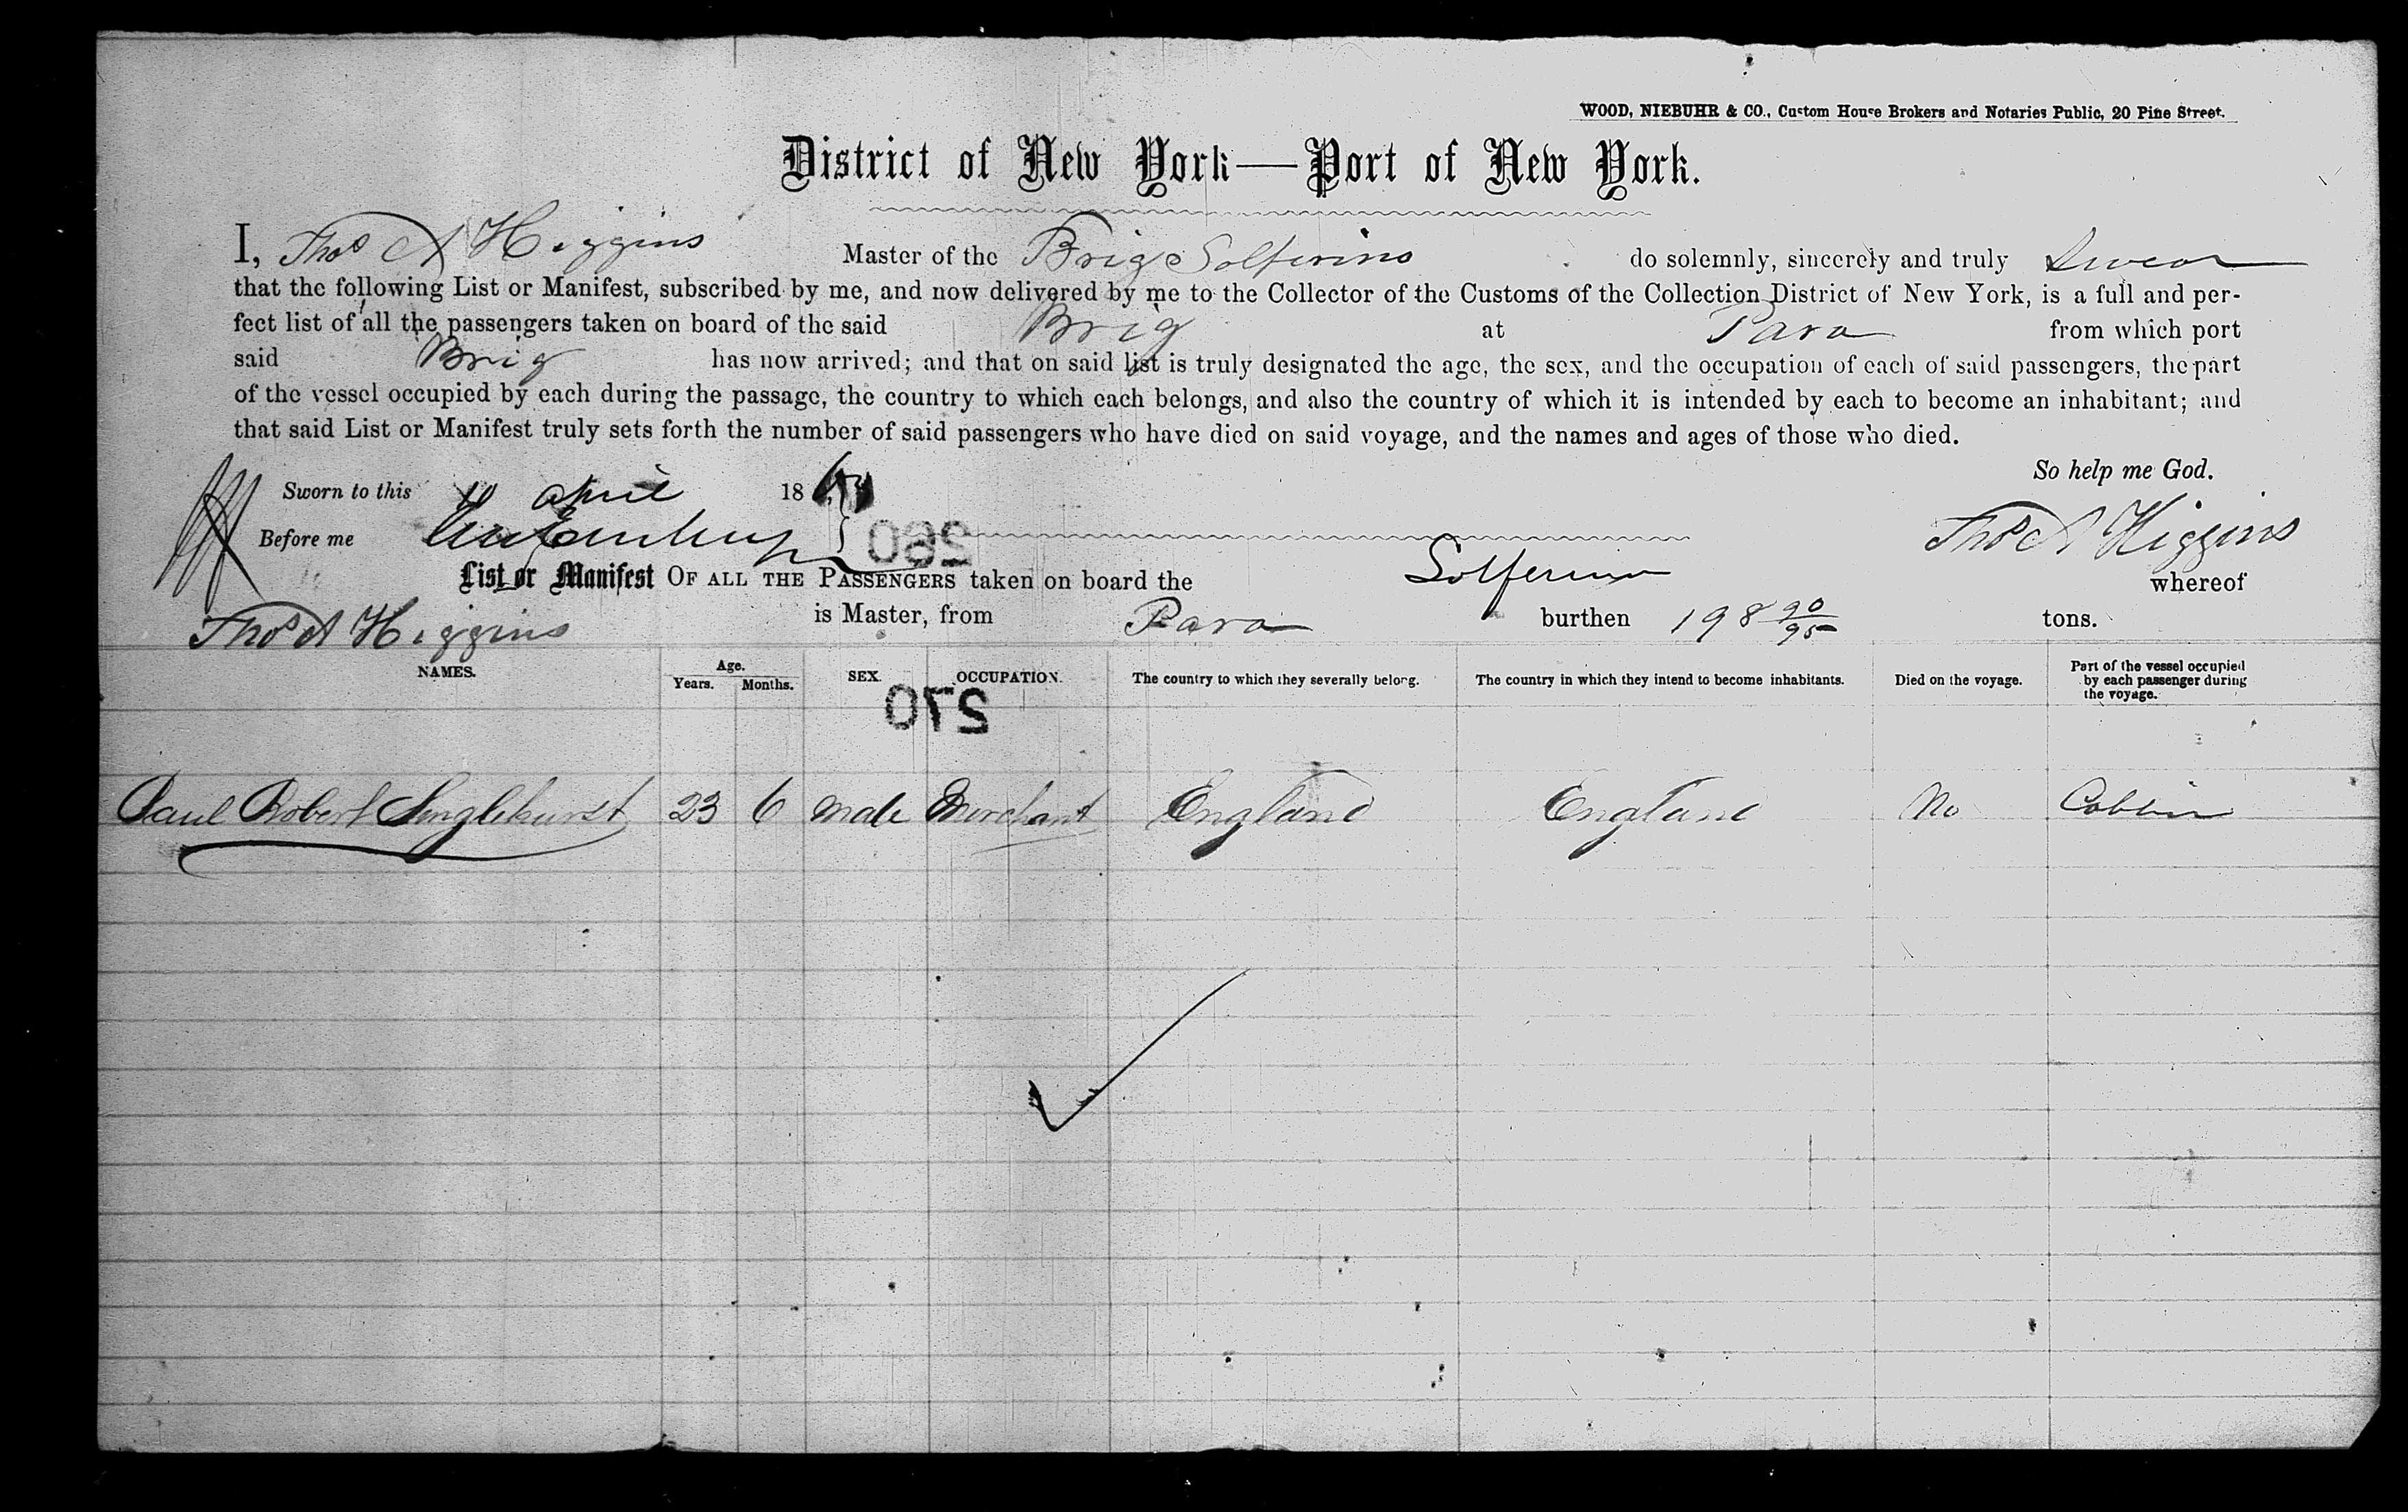 WOOD, NIEBUHR & CO., Custom House Brokers and Notaries Public, 20 Pine Street.
District of New York—Port of New York.
I, Thos A Higgins Master of the Brig Solferino do solemnly, sincerely and truly Swear
that the following List or Manifest, subscribed by me, and now delivered by me to the Collector of the Customs of the Collection District of New York, is a full and per-
fect list of all the passengers taken on board of the said Brig at Para from which port
said Brig has now arrived; and that on said list is truly designated the age, the sex, and the occupation of each of said passengers, the part
of the vessel occupied by each during the passage, the country to which each belongs, and also the country of which it is intended by each to become an inhabitant; and
that said List or Manifest truly sets forth the number of said passengers who have died on said voyage, and the names and ages of those who died.
So help me God.
Sworn to this april 186
Before me
Thos A Higgins
260
List or Manifest OF ALL THE PASSENGERS taken on board the Solferino whereof
Thos A Higgins is Master, from Para burthen 198 90/95 tons.
NAMES. Age. Years. Months. SEX. OCCUPATION. The country to which they severally belong. The country in which they intend to become inhabitants. Died on the voyage. Part of the vessel occupied by each passenger during the voyage.
270
Paul Robert Singlehurst 23 6 male Merchant England England No Cabbin